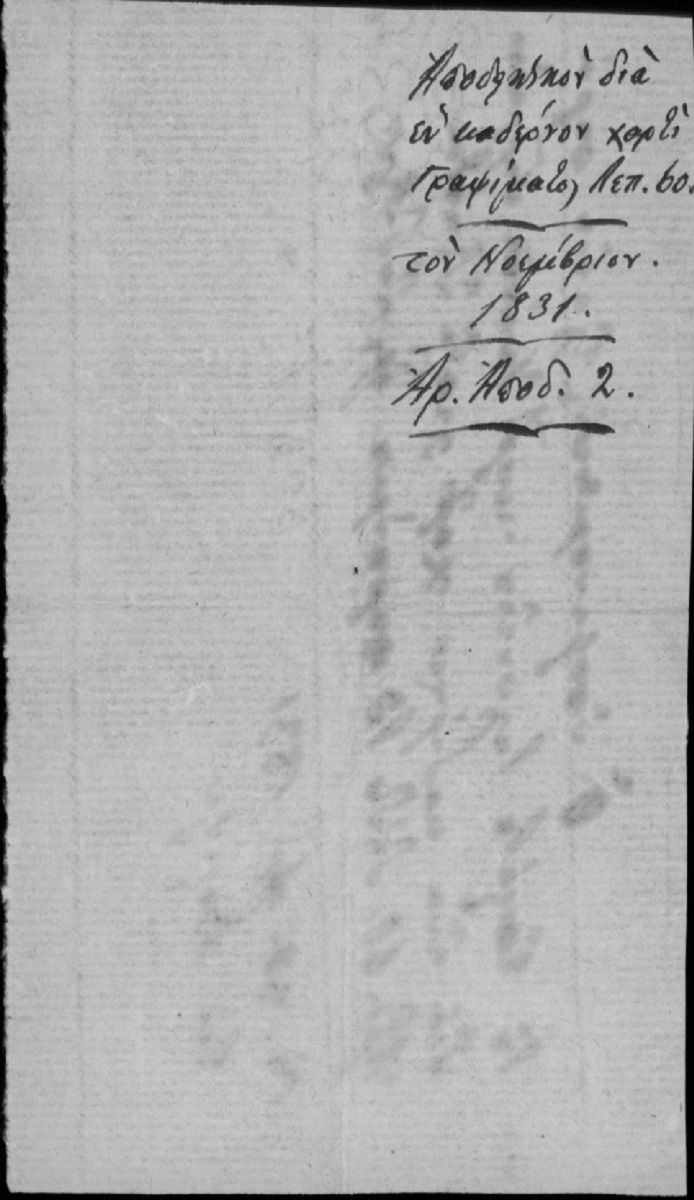 Ἀποδεικτικὸν διὰ
ἓν καδέρνον χαρτὶ
Γραψίματος Λεπ. 60.
τὸν Νοέμβριον.
1831.
Ἀρ. Ἀποδ. 2.